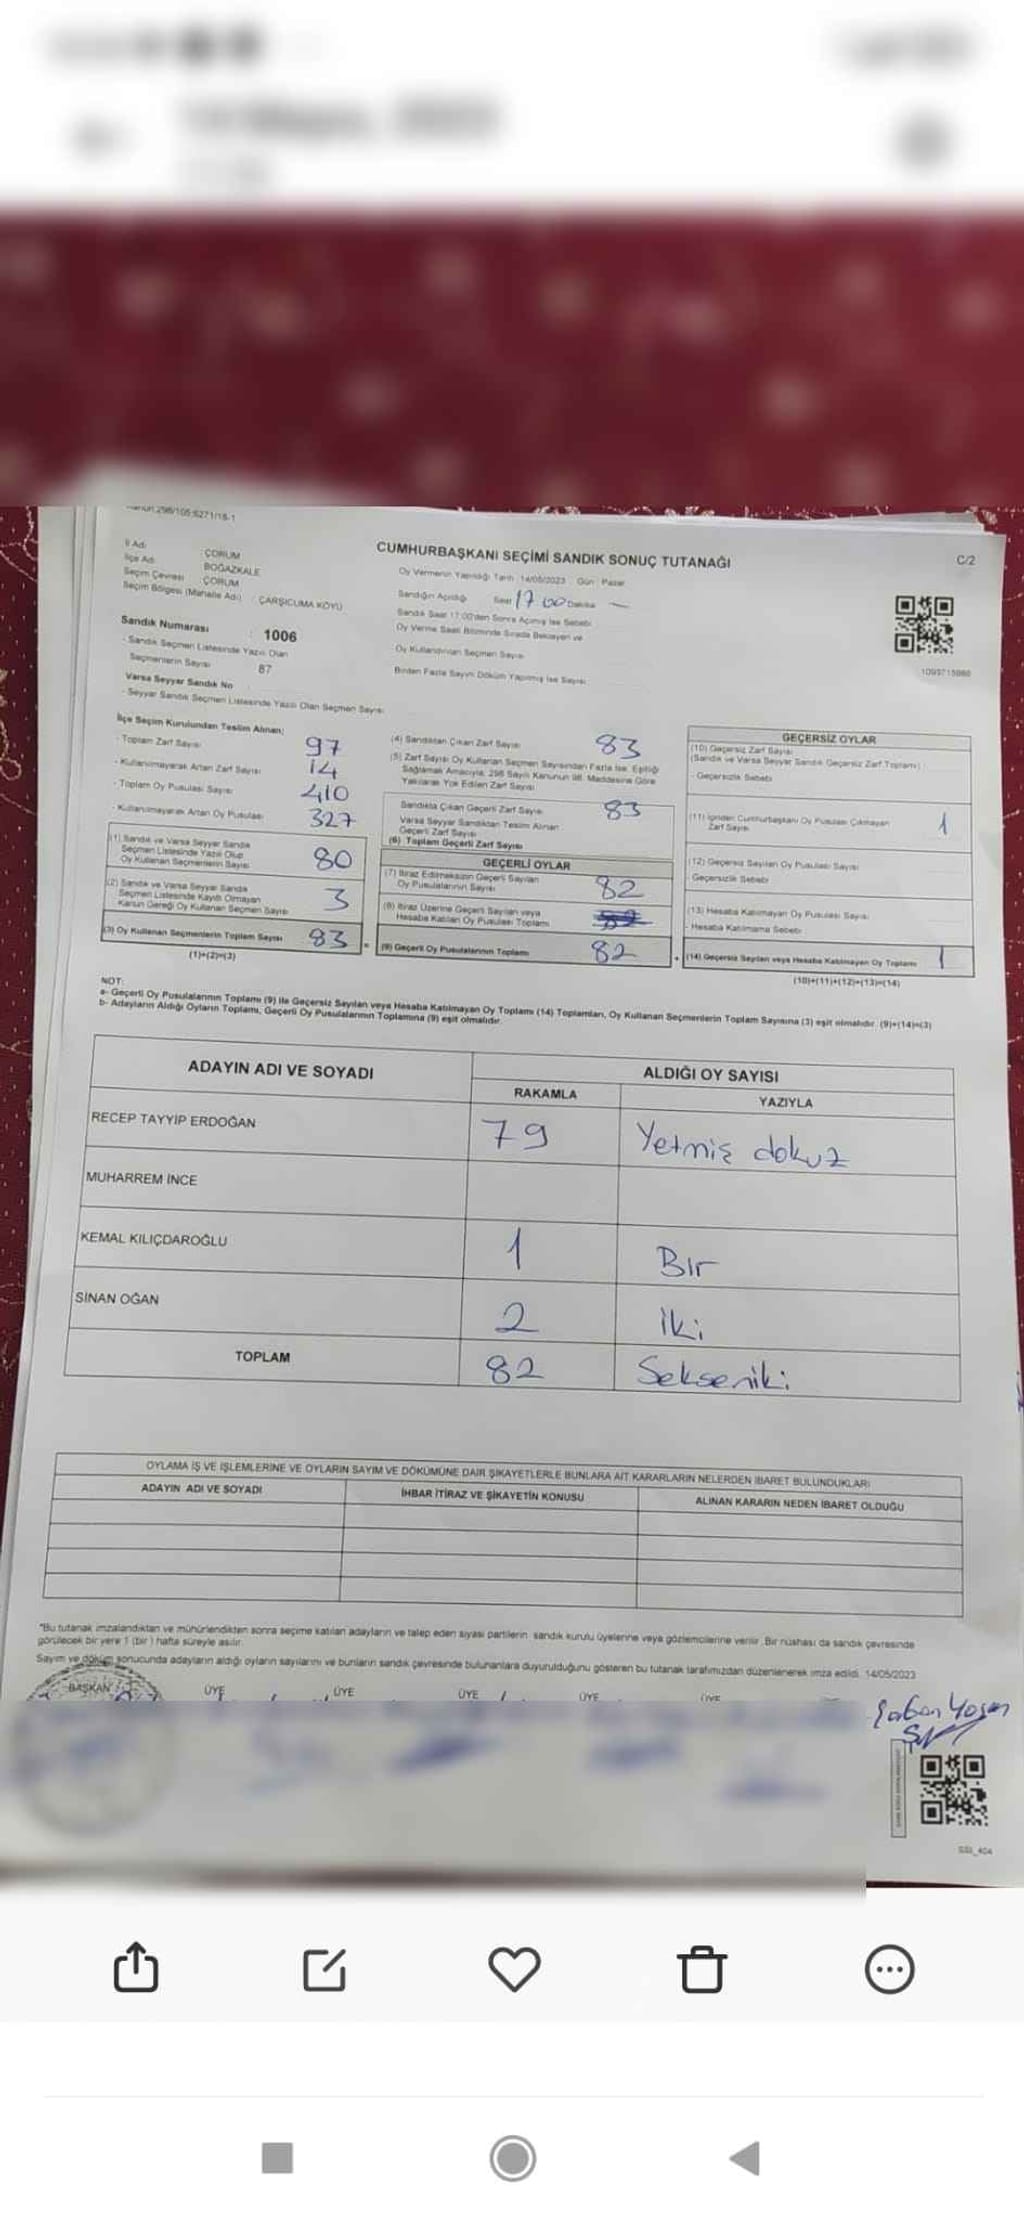 CUMHURBAŞKANI SEÇİMİ SANDIK SONUÇ TUTANAĞI
C/2
İl Adı ÇORUM
İlçe Adı BOĞAZKALE
Seçim Çevresi ÇORUM
Seçim Bölgesi (Mahalle Adı) ÇARŞICUMA KÖYÜ
Oy Vermenin Yapıldığı Tarih 14/05/2023 Gün: Pazar
Sandığın Açıldığı Saat 17 00 Dakika
Sandık Saat 17:00'den Sonra Açılmış İse Sebebi
Oy Verme Saati Bitiminde Sırada Bekleyen ve
Oy Kullandırılan Seçmen Sayısı
Birden Fazla Sayım Döküm Yapılmış İse Sayısı
Sandık Numarası : 1006
- Sandık Seçmen Listesinde Yazılı Olan
Seçmenlerin Sayısı 87
Varsa Seyyar Sandık No
- Seyyar Sandık Seçmen Listesinde Yazılı Olan Seçmen Sayısı
İlçe Seçim Kurulundan Teslim Alınan;
- Toplam Zarf Sayısı 97
- Kullanılmayarak Artan Zarf Sayısı 14
- Toplam Oy Pusulası Sayısı 410
- Kullanılmayarak Artan Oy Pusulası 327
(1) Sandık ve Varsa Seyyar Sandık
Seçmen Listesinde Yazılı Olup
Oy Kullanan Seçmenlerin Sayısı 80
(2) Sandık ve Varsa Seyyar Sandık
Seçmen Listesinde Kayıtlı Olmayan
Kanun Gereği Oy Kullanan Seçmen Sayısı 3
(3) Oy Kullanan Seçmenlerin Toplam Sayısı 83
(1)+(2)=(3)
(4) Sandıktan Çıkan Zarf Sayısı 83
(5) Zarf Sayısı Oy Kullanan Seçmen Sayısından Fazla İse, Eşitliği
Sağlamak Amacıyla, 298 Sayılı Kanunun 98. Maddesine Göre
Yakılarak Yok Edilen Zarf Sayısı
Sandıkta Çıkan Geçerli Zarf Sayısı 83
Varsa Seyyar Sandıktan Teslim Alınan
Geçerli Zarf Sayısı
(6) Toplam Geçerli Zarf Sayısı
GEÇERLİ OYLAR
(7) İtiraz Edilmeksizin Geçerli Sayılan
Oy Pusulalarının Sayısı 82
(8) İtiraz Üzerine Geçerli Sayılan veya
Hesaba Katılan Oy Pusulası Toplamı
(9) Geçerli Oy Pusulalarının Toplamı 82
GEÇERSİZ OYLAR
(10) Geçersiz Zarf Sayısı
(Sandık ve Varsa Seyyar Sandık Geçersiz Zarf Toplamı)
- Geçersizlik Sebebi
(11) İçinden Cumhurbaşkanı Oy Pusulası Çıkmayan
Zarf Sayısı 1
(12) Geçersiz Sayılan Oy Pusulası Sayısı
Geçersizlik Sebebi
(13) Hesaba Katılmayan Oy Pusulası Sayısı
- Hesaba Katılmama Sebebi
(14) Geçersiz Sayılan veya Hesaba Katılmayan Oy Toplamı 1
(10)+(11)+(12)+(13)=(14)
NOT:
a- Geçerli Oy Pusulalarının Toplamı (9) ile Geçersiz Sayılan veya Hesaba Katılmayan Oy Toplamı (14) Toplamları, Oy Kullanan Seçmenlerin Toplam Sayısına (3) eşit olmalıdır. (9)+(14)=(3)
b- Adayların Aldığı Oyların Toplamı, Geçerli Oy Pusulalarının Toplamına (9) eşit olmalıdır.
ADAYIN ADI VE SOYADI
ALDIĞI OY SAYISI
RAKAMLA YAZIYLA
RECEP TAYYİP ERDOĞAN 79 Yetmiş dokuz
MUHARREM İNCE
KEMAL KILIÇDAROĞLU 1 Bir
SİNAN OĞAN 2 İki
TOPLAM 82 Sekseniki
OYLAMA İŞ VE İŞLEMLERİNE VE OYLARIN SAYIM VE DÖKÜMÜNE DAİR ŞİKAYETLERLE BUNLARA AİT KARARLARIN NELERDEN İBARET BULUNDUKLARI
ADAYIN ADI VE SOYADI İHBAR İTİRAZ VE ŞİKAYETİN KONUSU ALINAN KARARIN NEDEN İBARET OLDUĞU
*Bu tutanak imzalandıktan ve mühürlendikten sonra seçime katılan adayların ve talep eden siyasi partilerin sandık kurulu üyelerine veya gözlemcilerine verilir. Bir nüshası da sandık çevresinde
görülecek bir yere 1 (bir) hafta süreyle asılır.
Sayım ve döküm sonucunda adayların aldığı oyların sayılarını ve bunların sandık çevresinde bulunanlara duyurulduğunu gösteren bu tutanak tarafımızdan düzenlenerek imza edildi. 14/05/2023
BAŞKAN ÜYE ÜYE ÜYE ÜYE ÜYE